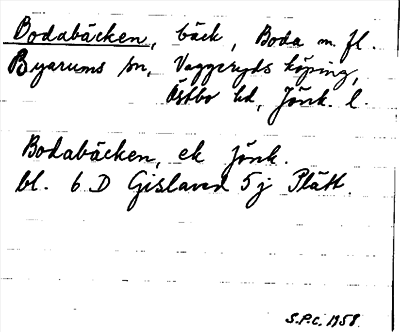 Bodabäcken, bäck, Boda m. fl.
Byarums sn, Vaggeryds köping,
Östbo hd, Jönk. l.
Bodabäcken, ek Jönk.
bl. 6 D Gislaved 5 j Plätt.
S.P.C. 1958